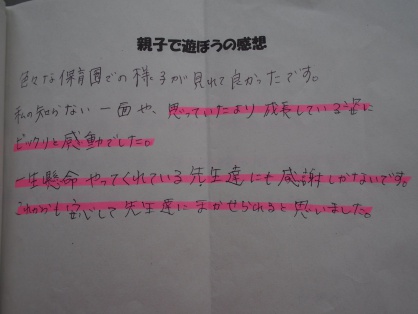 親子で遊ぼうの感想
色々な保育園での様子が見れて良かったです。
私の知らない一面や、思っていたより成長している姿に
ビックリと感動でした。
一生懸命やってくれている先生達にも感謝しかないです。
これからも安心して先生達にまかせられると思いました。